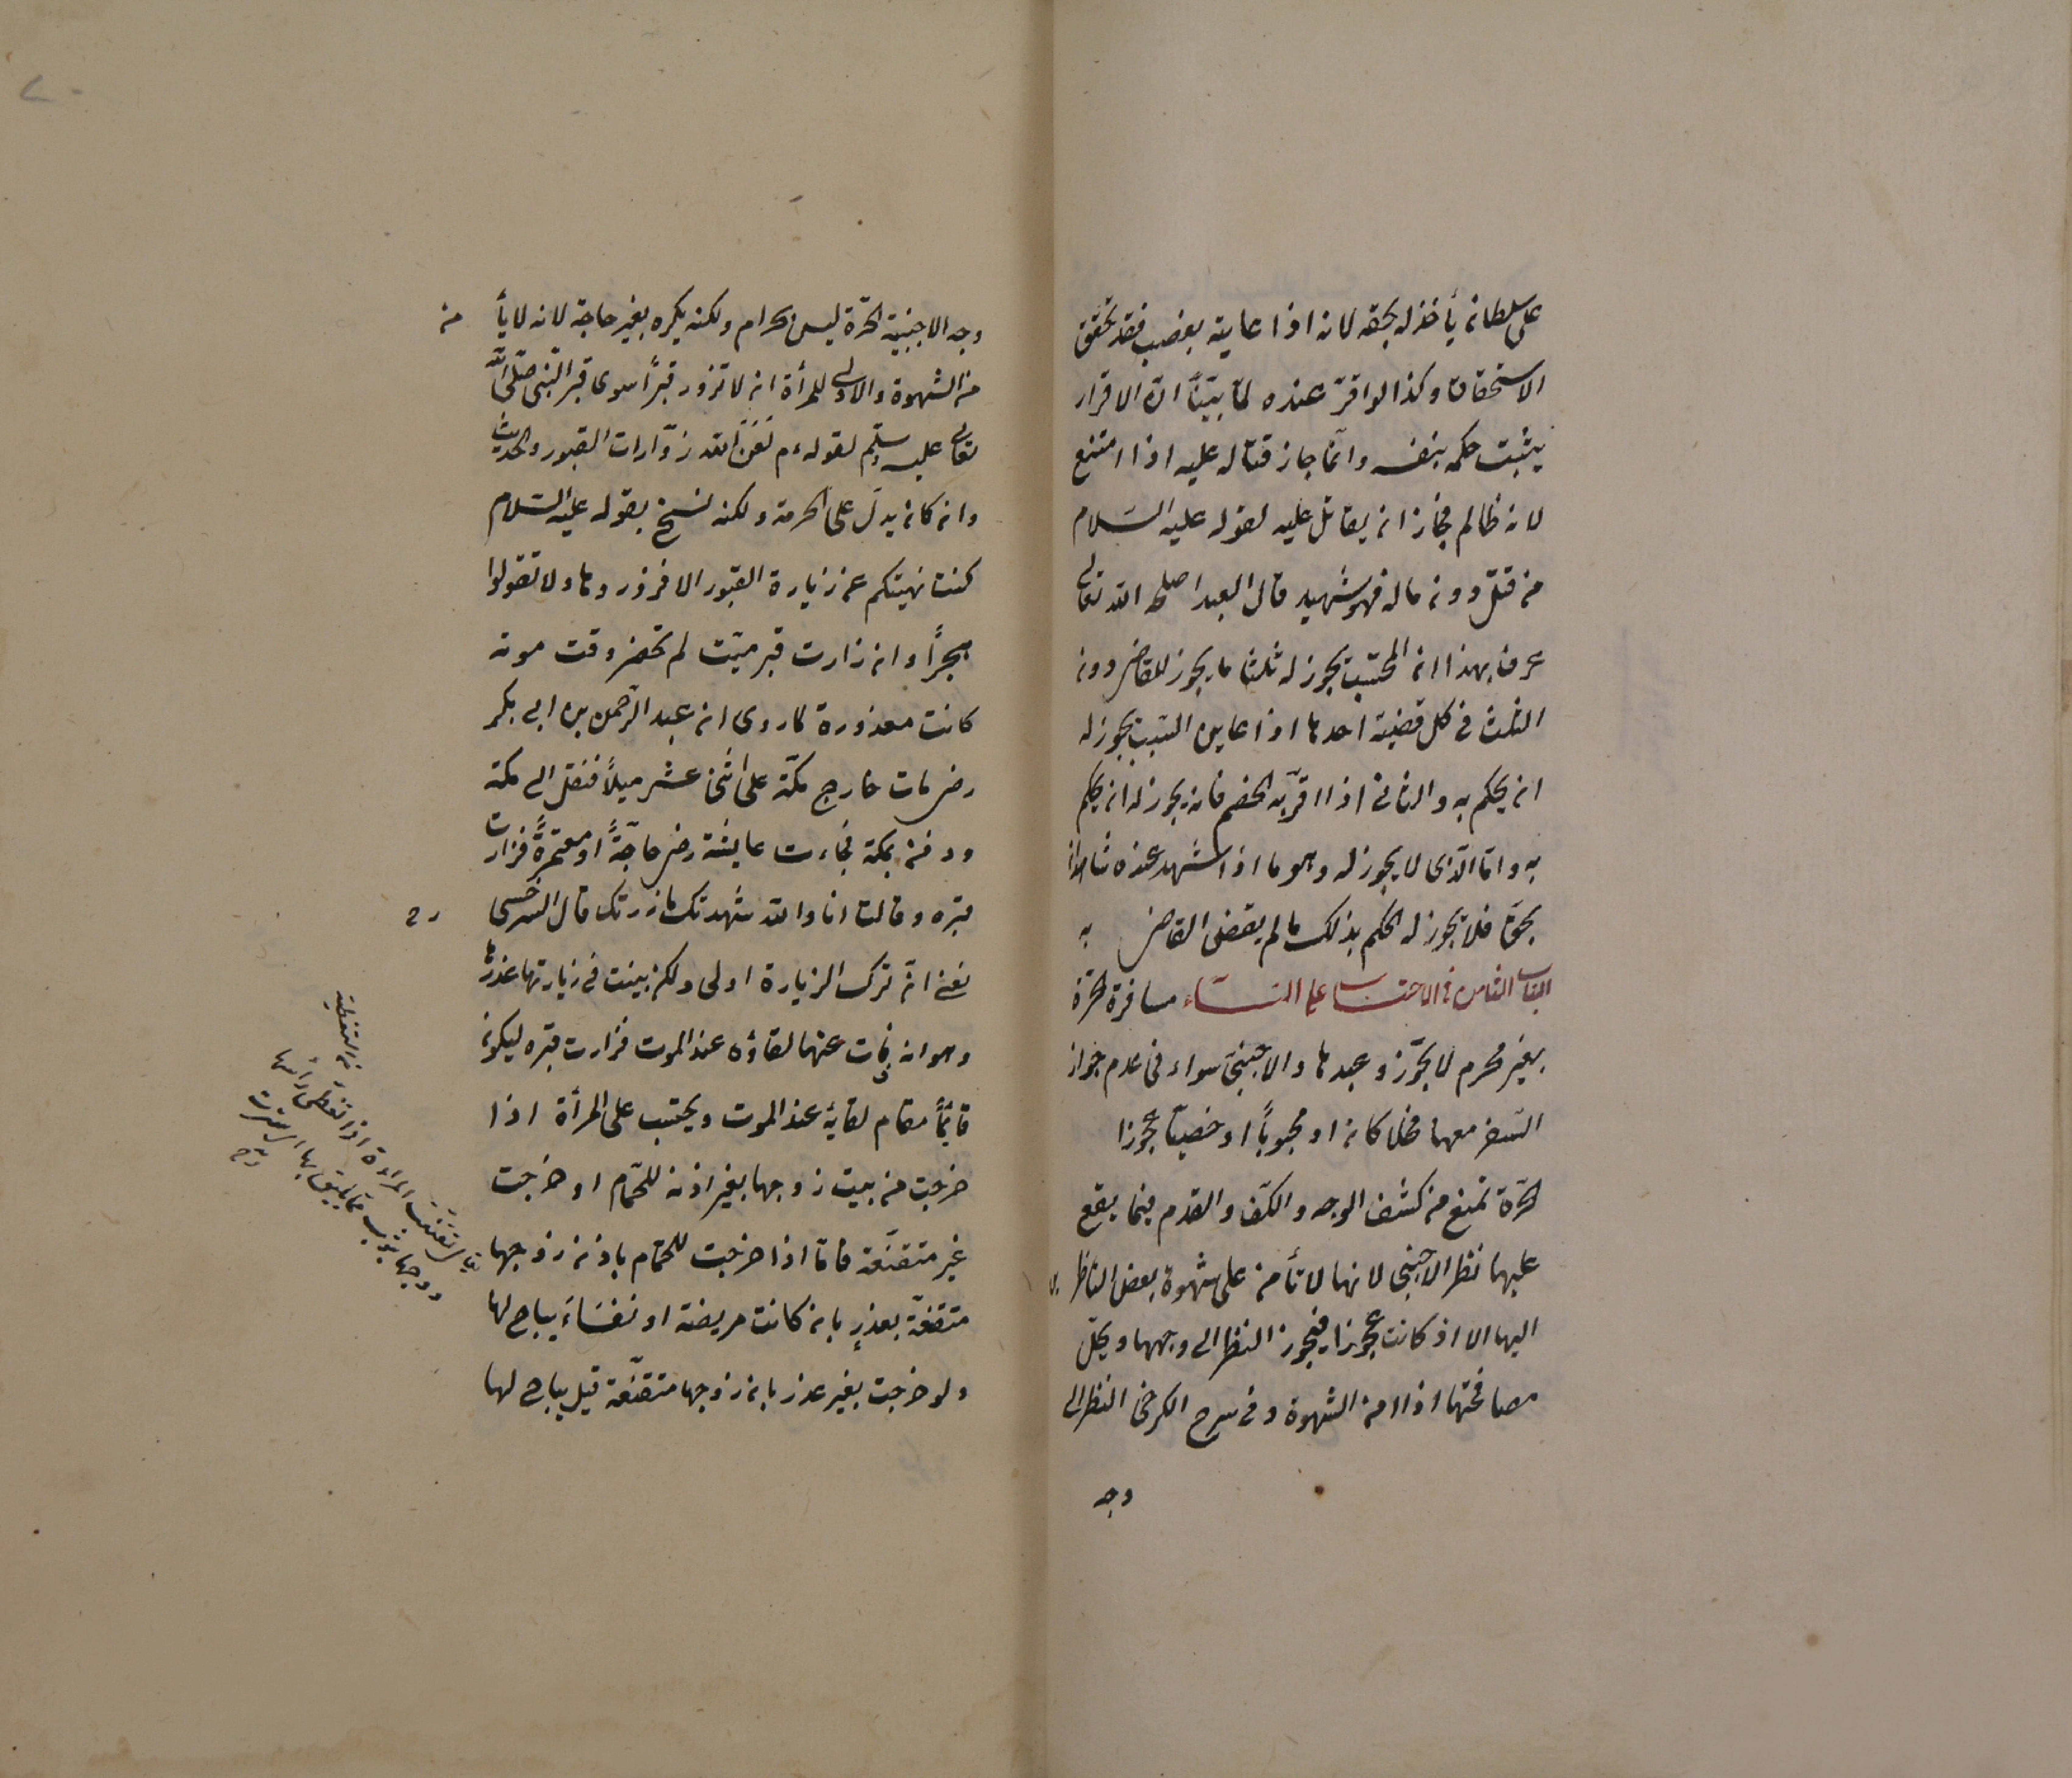 على سلطانه يأخذ له بحقه لانه اذا عاينه بغصب فقد تحقق
الاستحقاق وكذا لو اقرّ عنده لما بيّنّا انّ الاقرار
يثبت حكمه بنفسه وانما جاز قتاله عليه اذا امتنع
لانه ظالم فجاز ان يقاتل عليه لقوله عليه السّلام
من قتل دون ماله فهو شهيد قال العبد اصلحه الله تعالى
عرف بهذا ان المحتسب يجوز له ثلثا ما يجوز للقاضى دون
الثلث فى كل قضية احدها اذا عاين السّبب يجوز له
ان يحكم به والثانى اذا اقرّ به الخصم فانه يجوز له ان يحكم
به وامّا الّذى لا يجوز له وهو ما اذا شهد عنده شاهدان
بحقّ فلا يجوز له الحكم بذلك ما لم يقض القاضى به
الباب الثامن فى الاحتساب على النسّاء مسافرة الحرّة
بغير محرم لا يجوّز وعبدها والاجنبىّ سواء فى عدم جواز
السّفر معها فحلا كان او مجبوبًا او خصيّا عجوزا
الحرّة تمنع من كشف الوجه والكفّ والقدم فيما يقع
عليها نظر الاجنبى لانها لا تأمن على شهوة بعض الناظر
اليها الا اذ كانت عجوزا فيجوز النظر الى وجهها ويحلّ
مصافحتها اذا امن الشهوة وفى شرح الكرخى النظر الى
وجه
وجه الاجنبية الحرّة ليس بحرام ولكنه يكره بغير حاجة لانه لا يأمن
من الشهوة والاولى للمرأة ان لا تزور قبرًا سوى قبر النّبى صلّى الله
تعالى عليه وسلّم لقوله ءم لعن الله زوّارات القبور والحديث
وان كان يدلّ على الحرمة ولكنه نسخ بقوله عليه السّلام
كنت نهيتكم عن زيارة القبور الا فزوروها ولا تقولوا
هجرًا وان زارت قبر ميّت لم تحضر وقت موته
كانت معذورة لما روى ان عبد الرّحمن بن ابى بكر
رضى مات خارج مكّة على اثنى عشر ميلاً فنقل الى مكة
ودفن بمكة فجاءت عايشة رضى حاجّةً او معتمرةً فزارت
قبره وقالت انا والله شهدتك ما زرتك قال السرخسى رح
يعنى انّ ترك الزيارة اولى ولكن بينت فى زيارتها عذرها
وهو انه فات عنها لقاؤه عند الموت فزارت قبره ليكون
قائمًا مقام لقائه عند الموت ويحتسب على المرأة اذا
خرجت من بيت زوجها بغير اذنه للحمّام او خرجت
غير متقنّعة فامّا اذا خرجت للحمّام باذن زوجها
متقنعّة بعذرٍ بان كانت مريضة او نفسَاءَ يباح لها
ولو خرجت بغير عذر باذن زوجها متقنّعة قيل يباح لها
تقنّعت المراءة اذا تغطّى رأسها
ووجهها بثوب